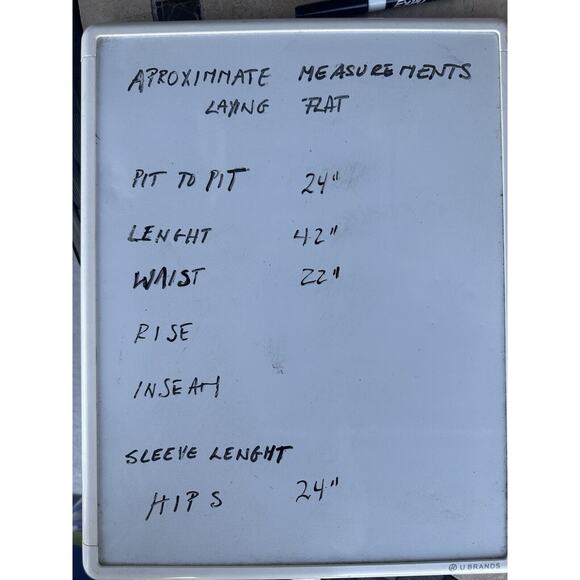 APROXIMMATE MEASUREMENTS
LAYING FLAT
PIT TO PIT 24"
LENGHT 42"
WAIST 22"
RISE
INSEAM
SLEEVE LENGHT
HIPS 24"
U BRANDS